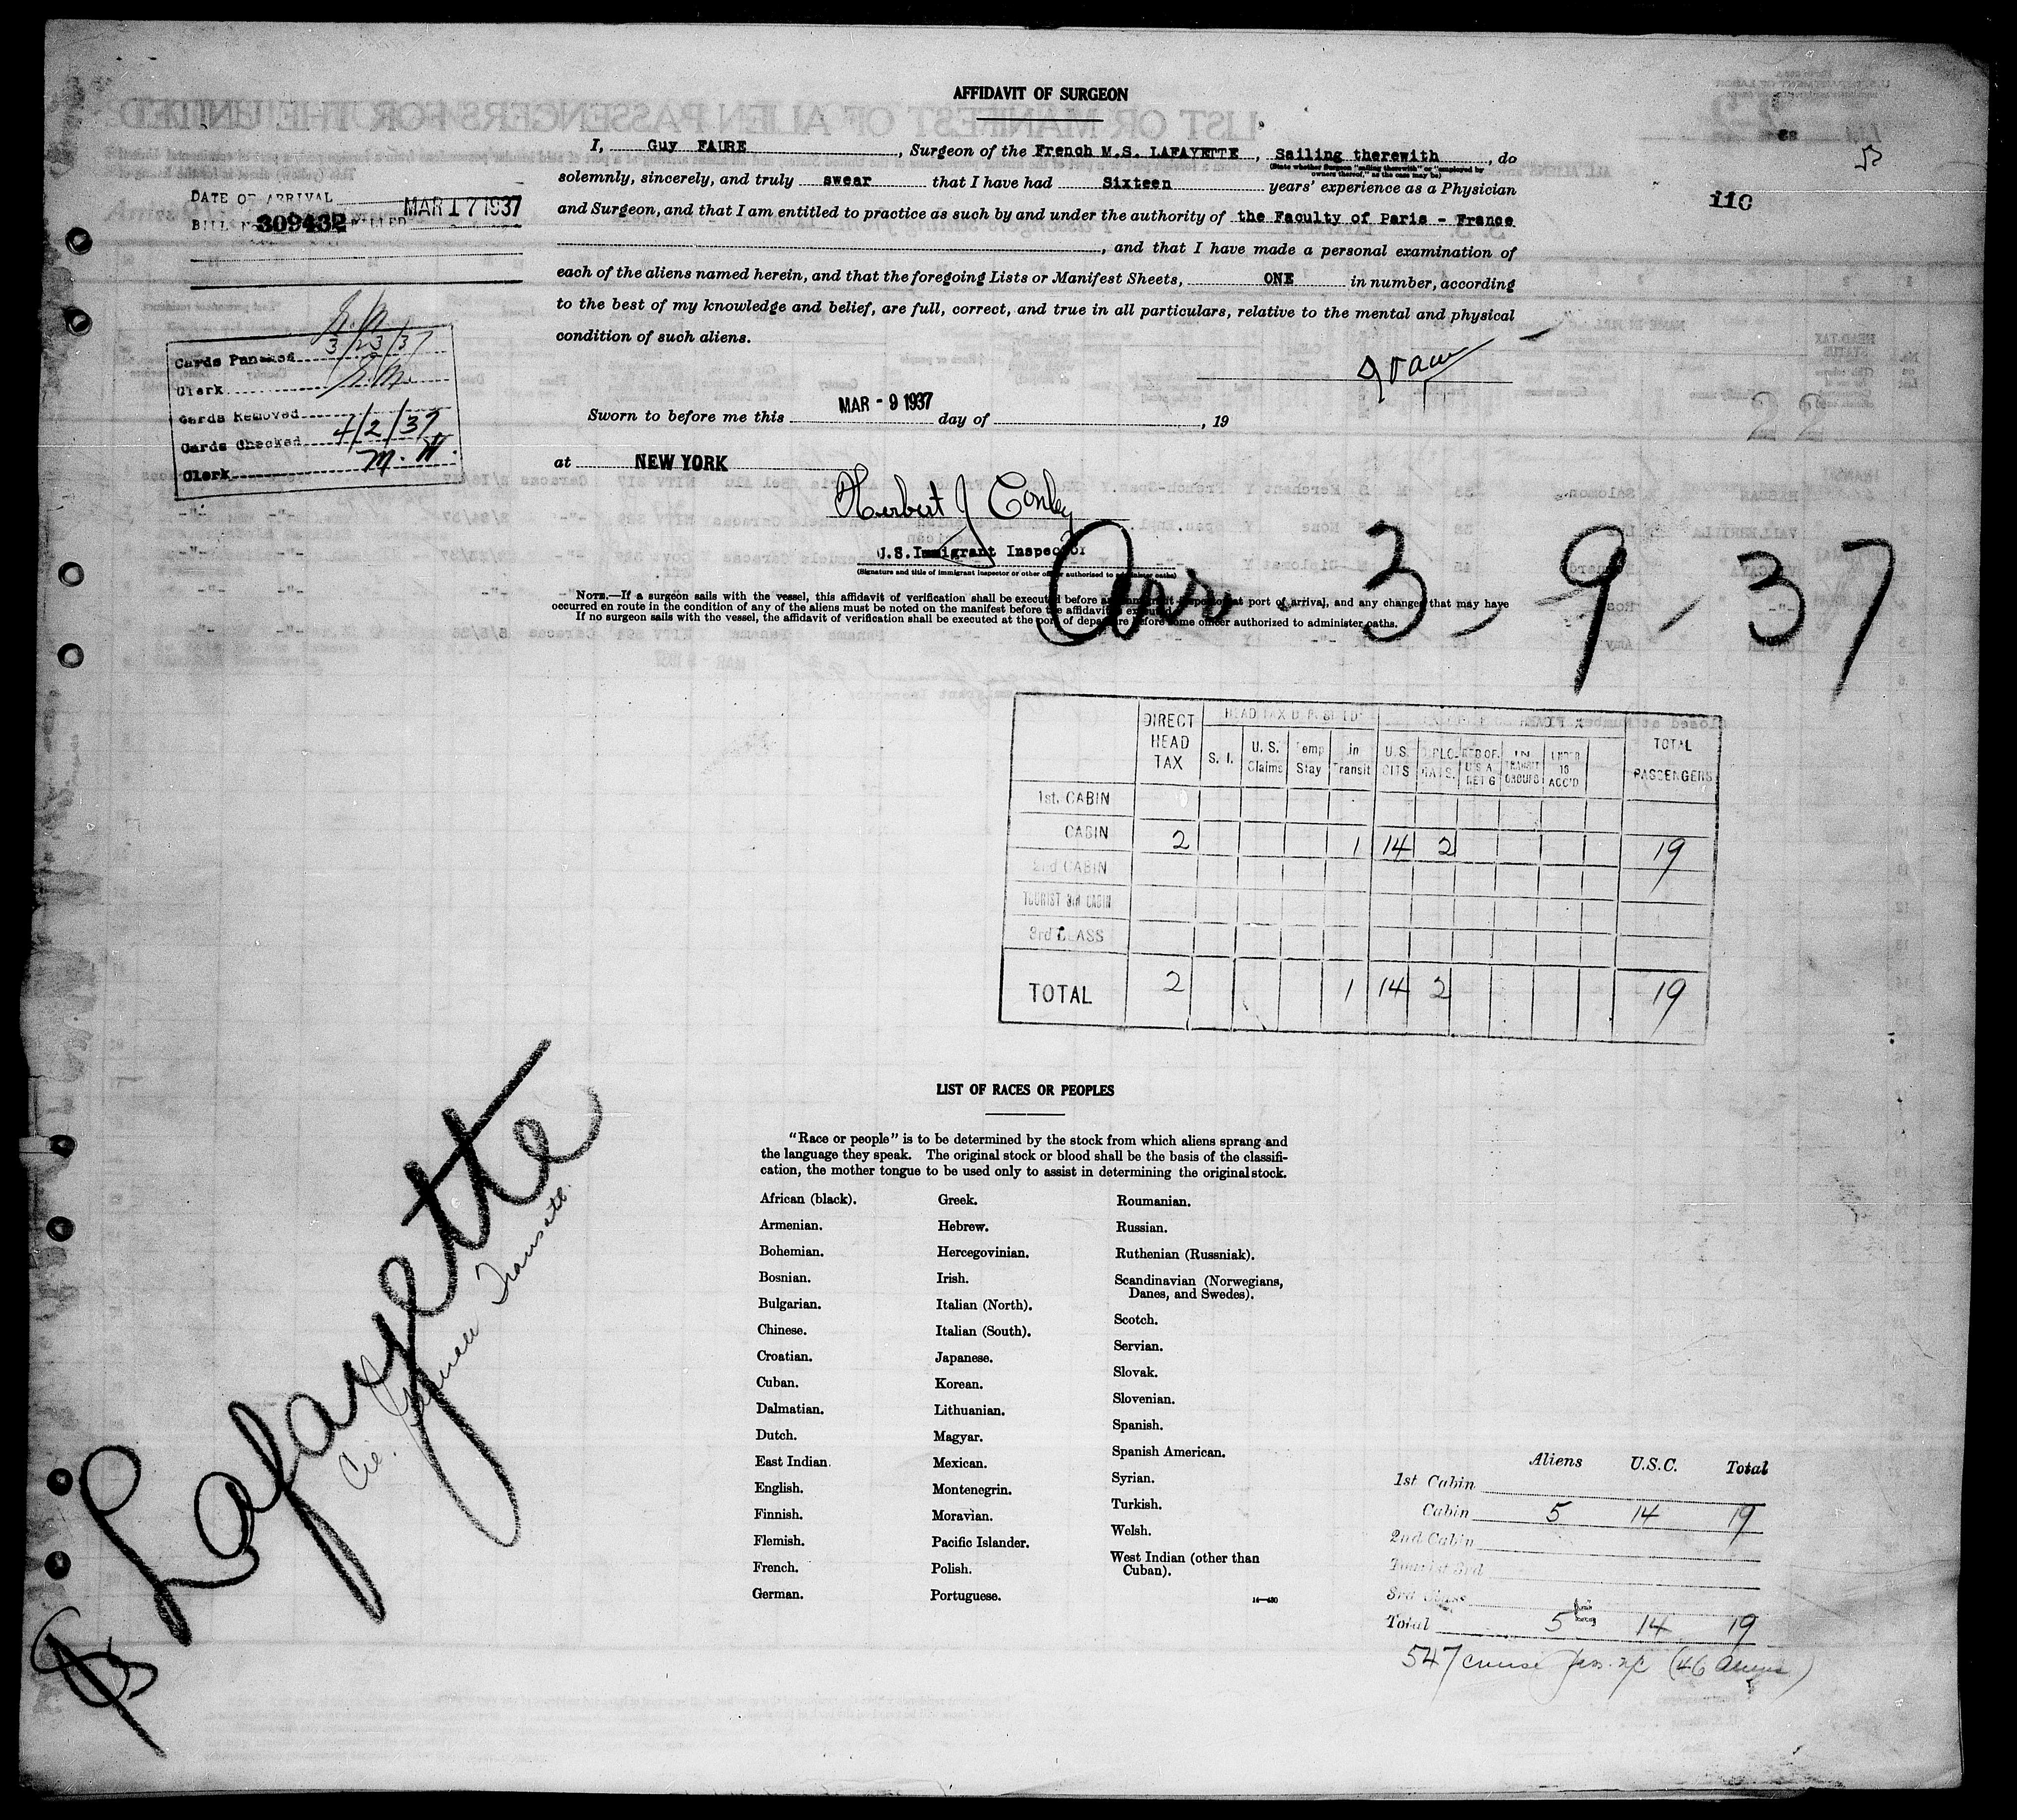 AFFIDAVIT OF SURGEON
I, Guy FAURE, Surgeon of the French M.S. LAFAYETTE, Sailing therewith, do
(State whether Surgeon "sailing therewith" or "employed by owners thereof," as the case may be)
solemnly, sincerely, and truly swear that I have had Sixteen years' experience as a Physician
and Surgeon, and that I am entitled to practice as such by and under the authority of the Faculty of Paris - France
, and that I have made a personal examination of
each of the aliens named herein, and that the foregoing Lists or Manifest Sheets, ONE in number, according
to the best of my knowledge and belief, are full, correct, and true in all particulars, relative to the mental and physical
condition of such aliens.
110
DATE OF ARRIVAL
BILL No 309432 BILLED MAR 17 1937
Cards Punched 3/23/37
Clerk
Cards Removed
Cards Checked 4/2/37
Clerk M. W.
Sworn to before me this MAR - 9 1937 day of , 19
at NEW YORK
Herbert J Conley
U.S. Immigrant Inspector
(Signature and title of immigrant inspector or other officer authorized to administer oaths)
Arr. 3, 9, 37
NOTE.—If a surgeon sails with the vessel, this affidavit of verification shall be executed before an immigrant inspector at port of arrival, and any changes that may have
occurred en route in the condition of any of the aliens must be noted on the manifest before the affidavit is executed.
If no surgeon sails with the vessel, the affidavit of verification shall be executed at the port of departure before some officer authorized to administer oaths.
22
DIRECT HEAD TAX
S. I.
U. S. Claims
Temp Stay
in Transit
U. S. CITS
DIPLO-MATS.
IN TRANSIT GROUPS
UNDER 16 ACC'D
TOTAL PASSENGERS
1st. CABIN
CABIN 2 1 14 2 19
2nd CABIN
TOURIST 3rd CABIN
3rd CLASS
TOTAL 2 1 14 2 19
LIST OF RACES OR PEOPLES
"Race or people" is to be determined by the stock from which aliens sprang and
the language they speak. The original stock or blood shall be the basis of the classifi-
cation, the mother tongue to be used only to assist in determining the original stock.
African (black).
Armenian.
Bohemian.
Bosnian.
Bulgarian.
Chinese.
Croatian.
Cuban.
Dalmatian.
Dutch.
East Indian.
English.
Finnish.
Flemish.
French.
German.
Greek.
Hebrew.
Hercegovinian.
Irish.
Italian (North).
Italian (South).
Japanese.
Korean.
Lithuanian.
Magyar.
Mexican.
Montenegrin.
Moravian.
Pacific Islander.
Polish.
Portuguese.
Roumanian.
Russian.
Ruthenian (Russniak).
Scandinavian (Norwegians,
Danes, and Swedes).
Scotch.
Servian.
Slovak.
Slovenian.
Spanish.
Spanish American.
Syrian.
Turkish.
Welsh.
West Indian (other than
Cuban).
Lafayette
Cie. Transatl.
Aliens U.S.C. Total
1st Cabin
Cabin 5 14 19
2nd Cabin
Tourist 3rd
3rd Class
Total 5 14 19
547 cruise (46 aliens)